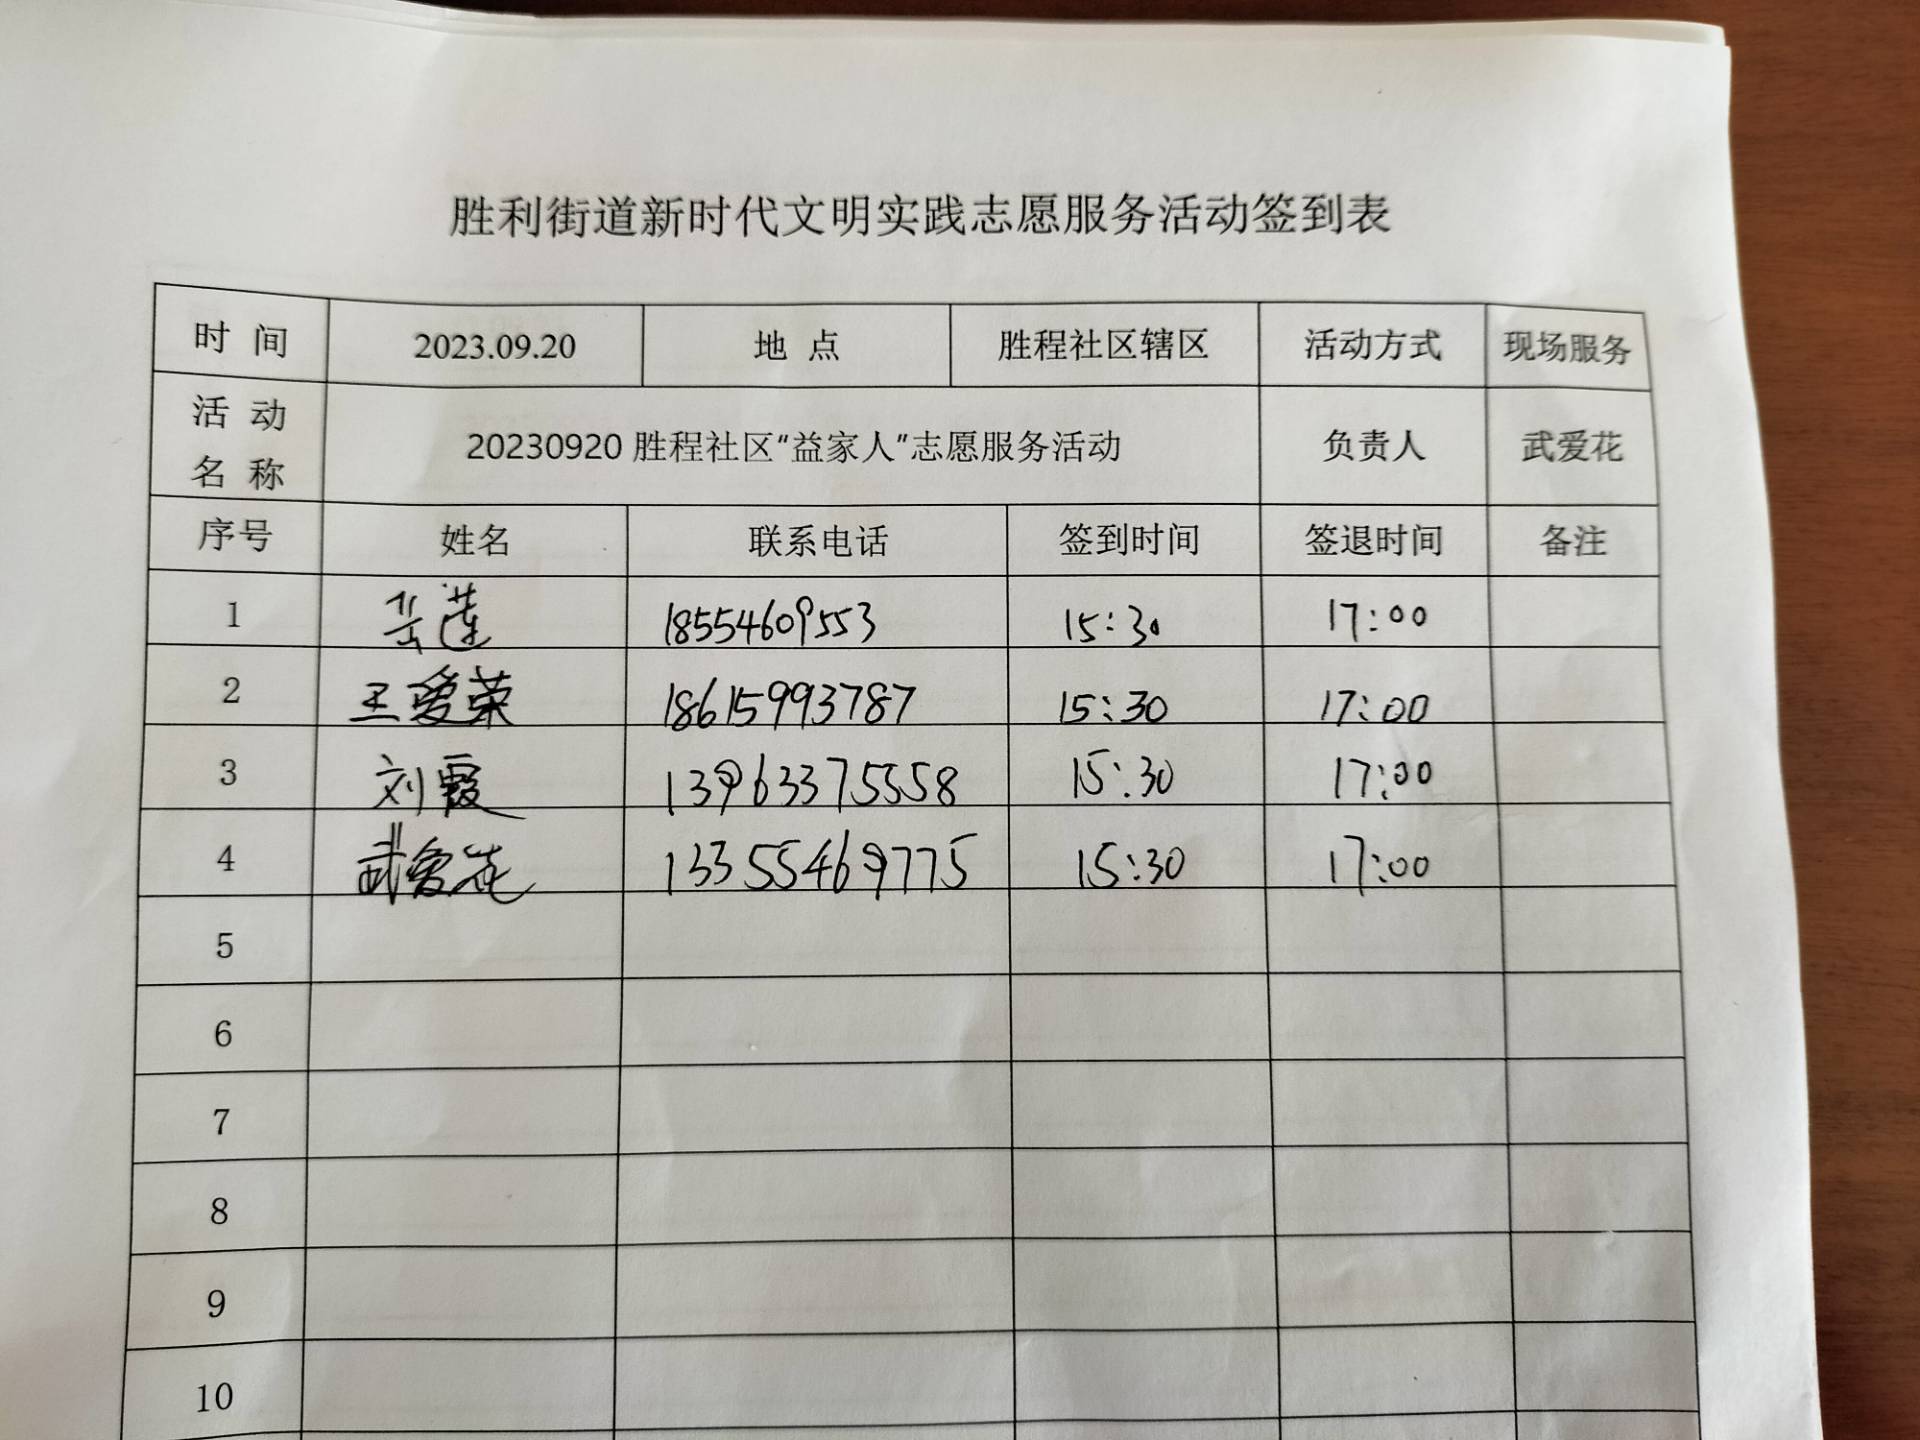 胜利街道新时代文明实践志愿服务活动签到表
时 间 2023.09.20 地 点 胜程社区辖区 活动方式 现场服务
活 动
名 称 20230920 胜程社区“益家人”志愿服务活动 负责人 武爱花
序号 姓名 联系电话 签到时间 签退时间 备注
1 岳莲 18554609553 15:30 17:00
2 王爱荣 18615993787 15:30 17:00
3 刘霞 13963375558 15:30 17:00
4 武爱花 13355469775 15:30 17:00
5
6
7
8
9
10